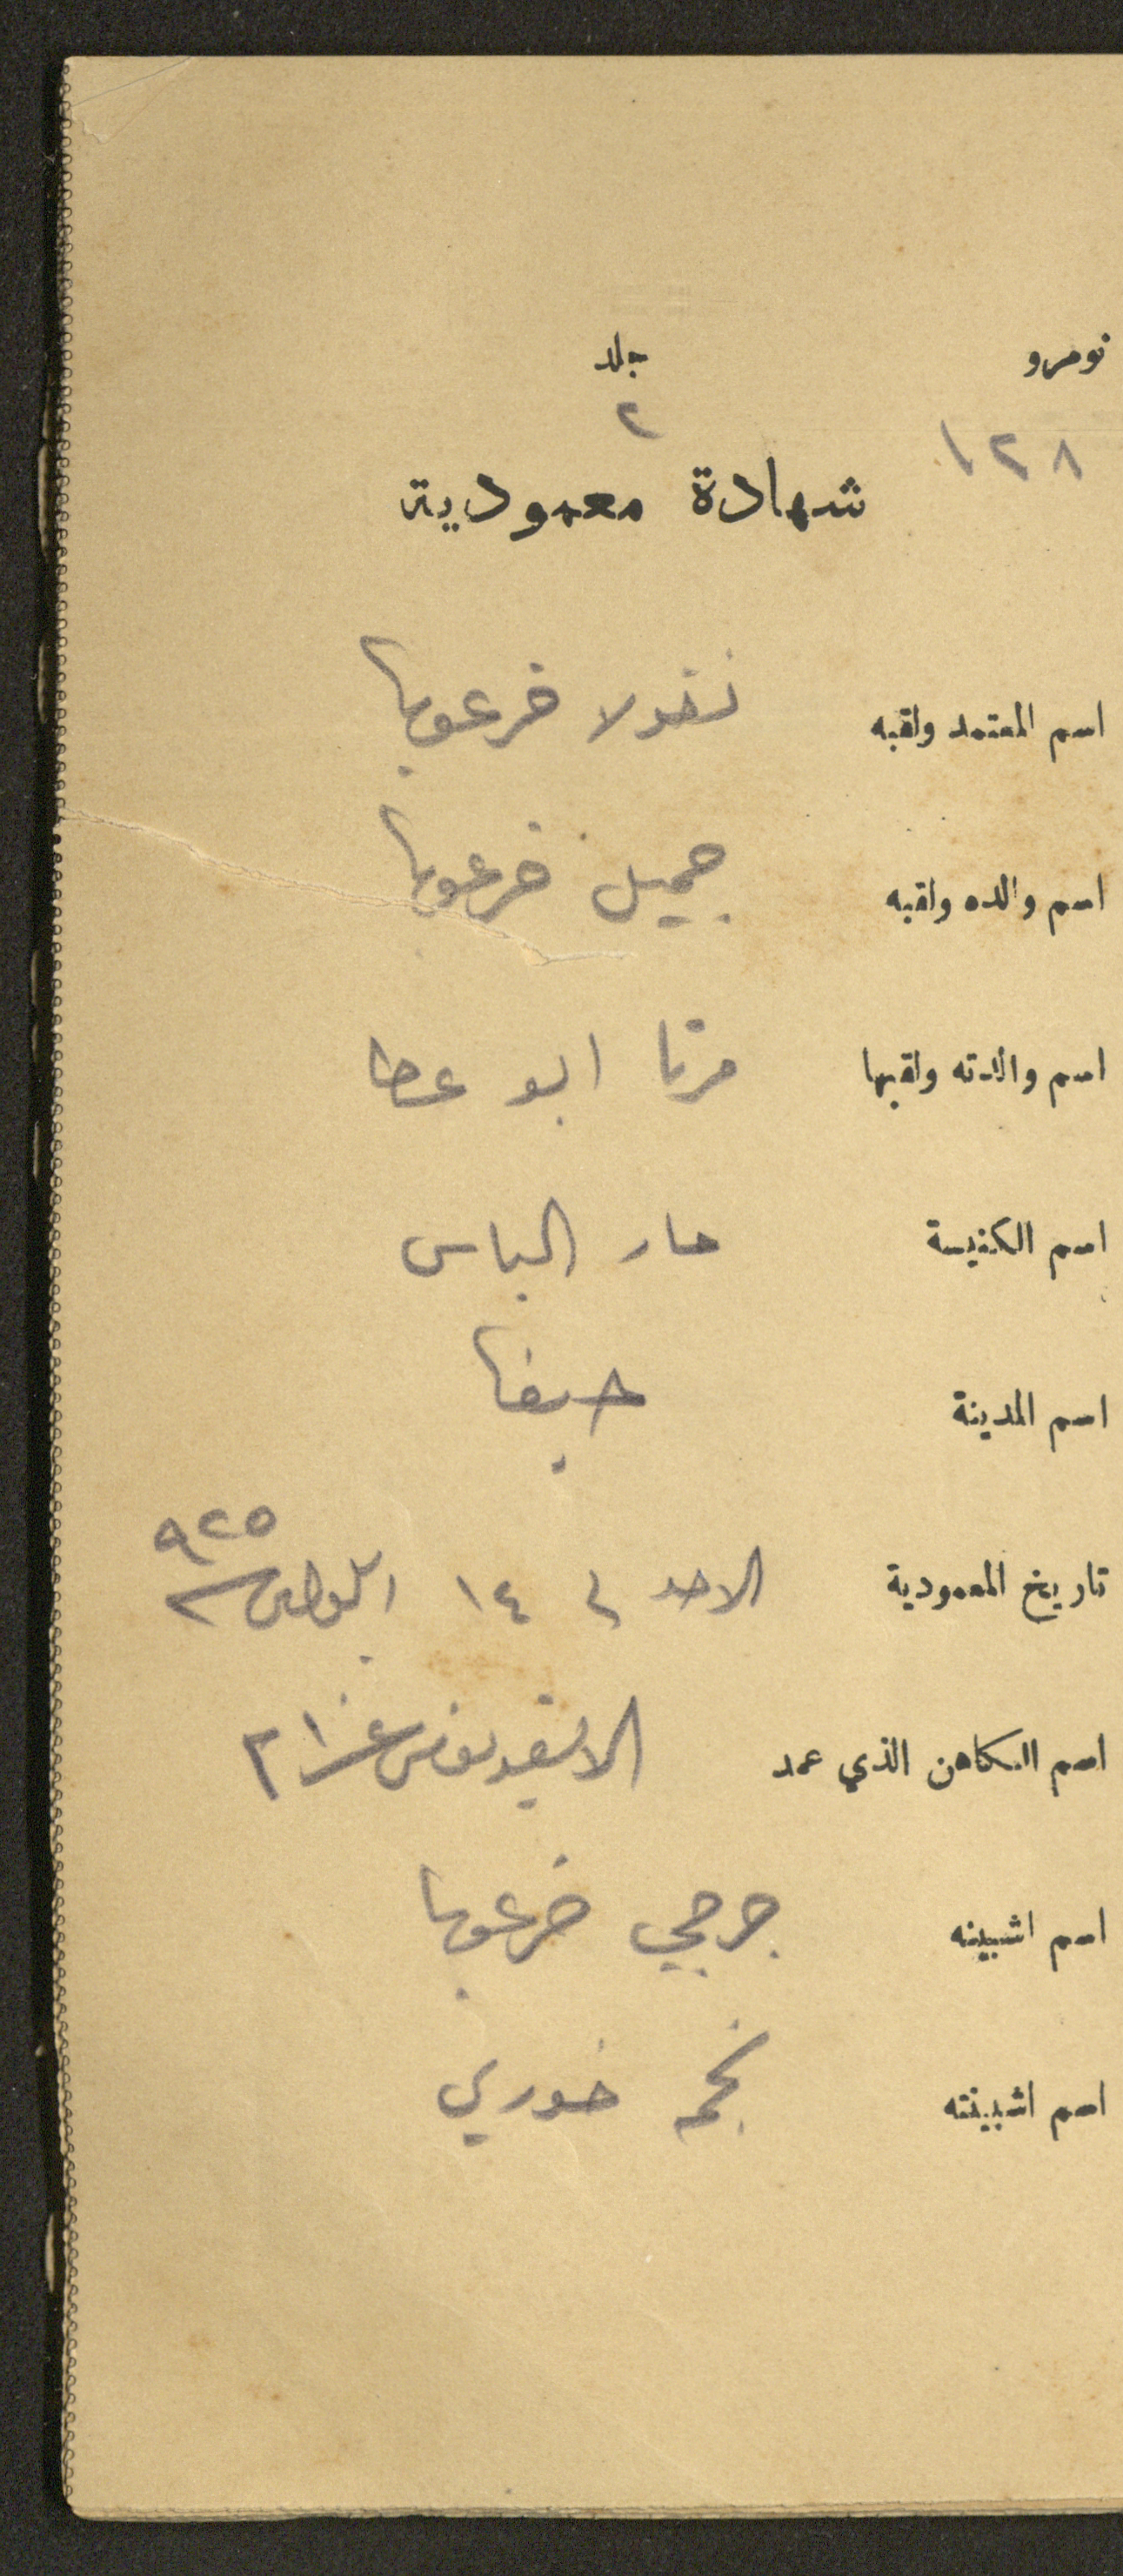 نومرو جلد
١٢٨ ٢
شهادة معمودية
اسم المعتمد ولقبه نقولا خرعوبا
اسم والده ولقبه جميل خرعوبا
اسم والدته ولقبها مرتا ابو عطا
اسم الكنيسة مار الياس
اسم المدينة حيفا
تاريخ المعمودية الاحد في ١٤ ٩٢٥
اسم الكاهن الذي عمد
اسم اشبينه جرجي خرعوبا
اسم اشبينته نجمه خوري